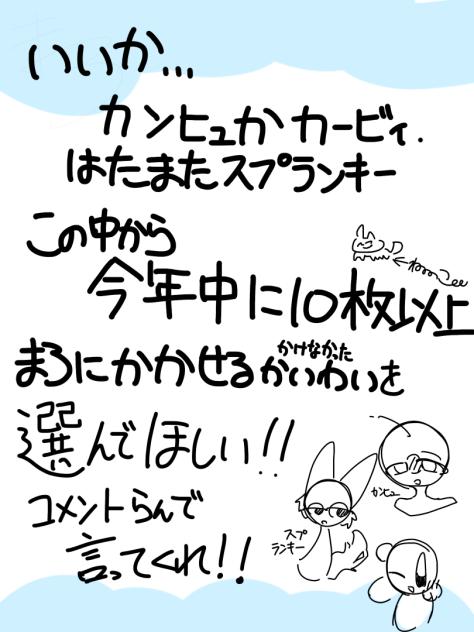 いいか...
カンヒュか カービィ.
はたまたスプランキー
この中から
ねこ
今年中に10枚以上
かけなかった
まろにかかせるかいわいを
選んでほしい!!
コメントらんで
言ってくれ!!
カンヒュ
スプランキー